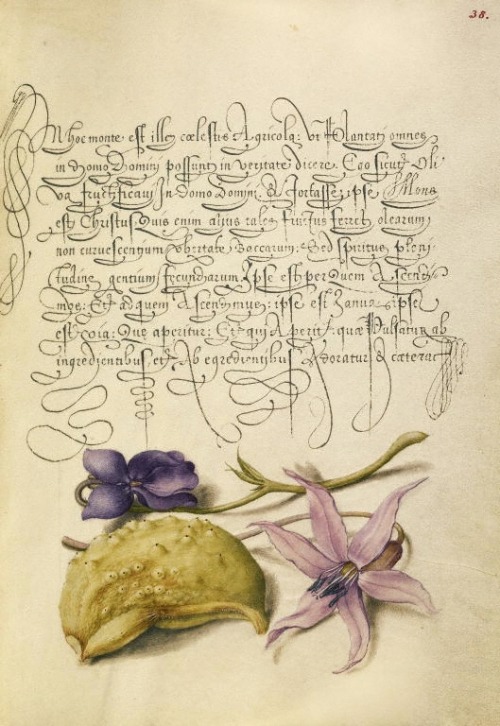 38.
In hoc monte est ille cælestis Agricola: Ut Plantati omnes
in Domo Domini possunt in veritate dicere. Ego sicut Oli
va fructificavi In domo Domini. Et fortasse ipse Mons
est Christus. Quis enim alius tales fructus ferret olearum,
non curvescentium ubertate Boccarum: Sed spiritus pleni
tudine gentium fecundiarum. Ipse est per Quem Ascendi
mus: Et ad quem Ascendimus: ipse est Ianua: ipse
est via: Que aperitur: Et qui Aperit: quæ Pulsatur ab
ingredientibus, et Ab egredientibus Adoratur & cætera